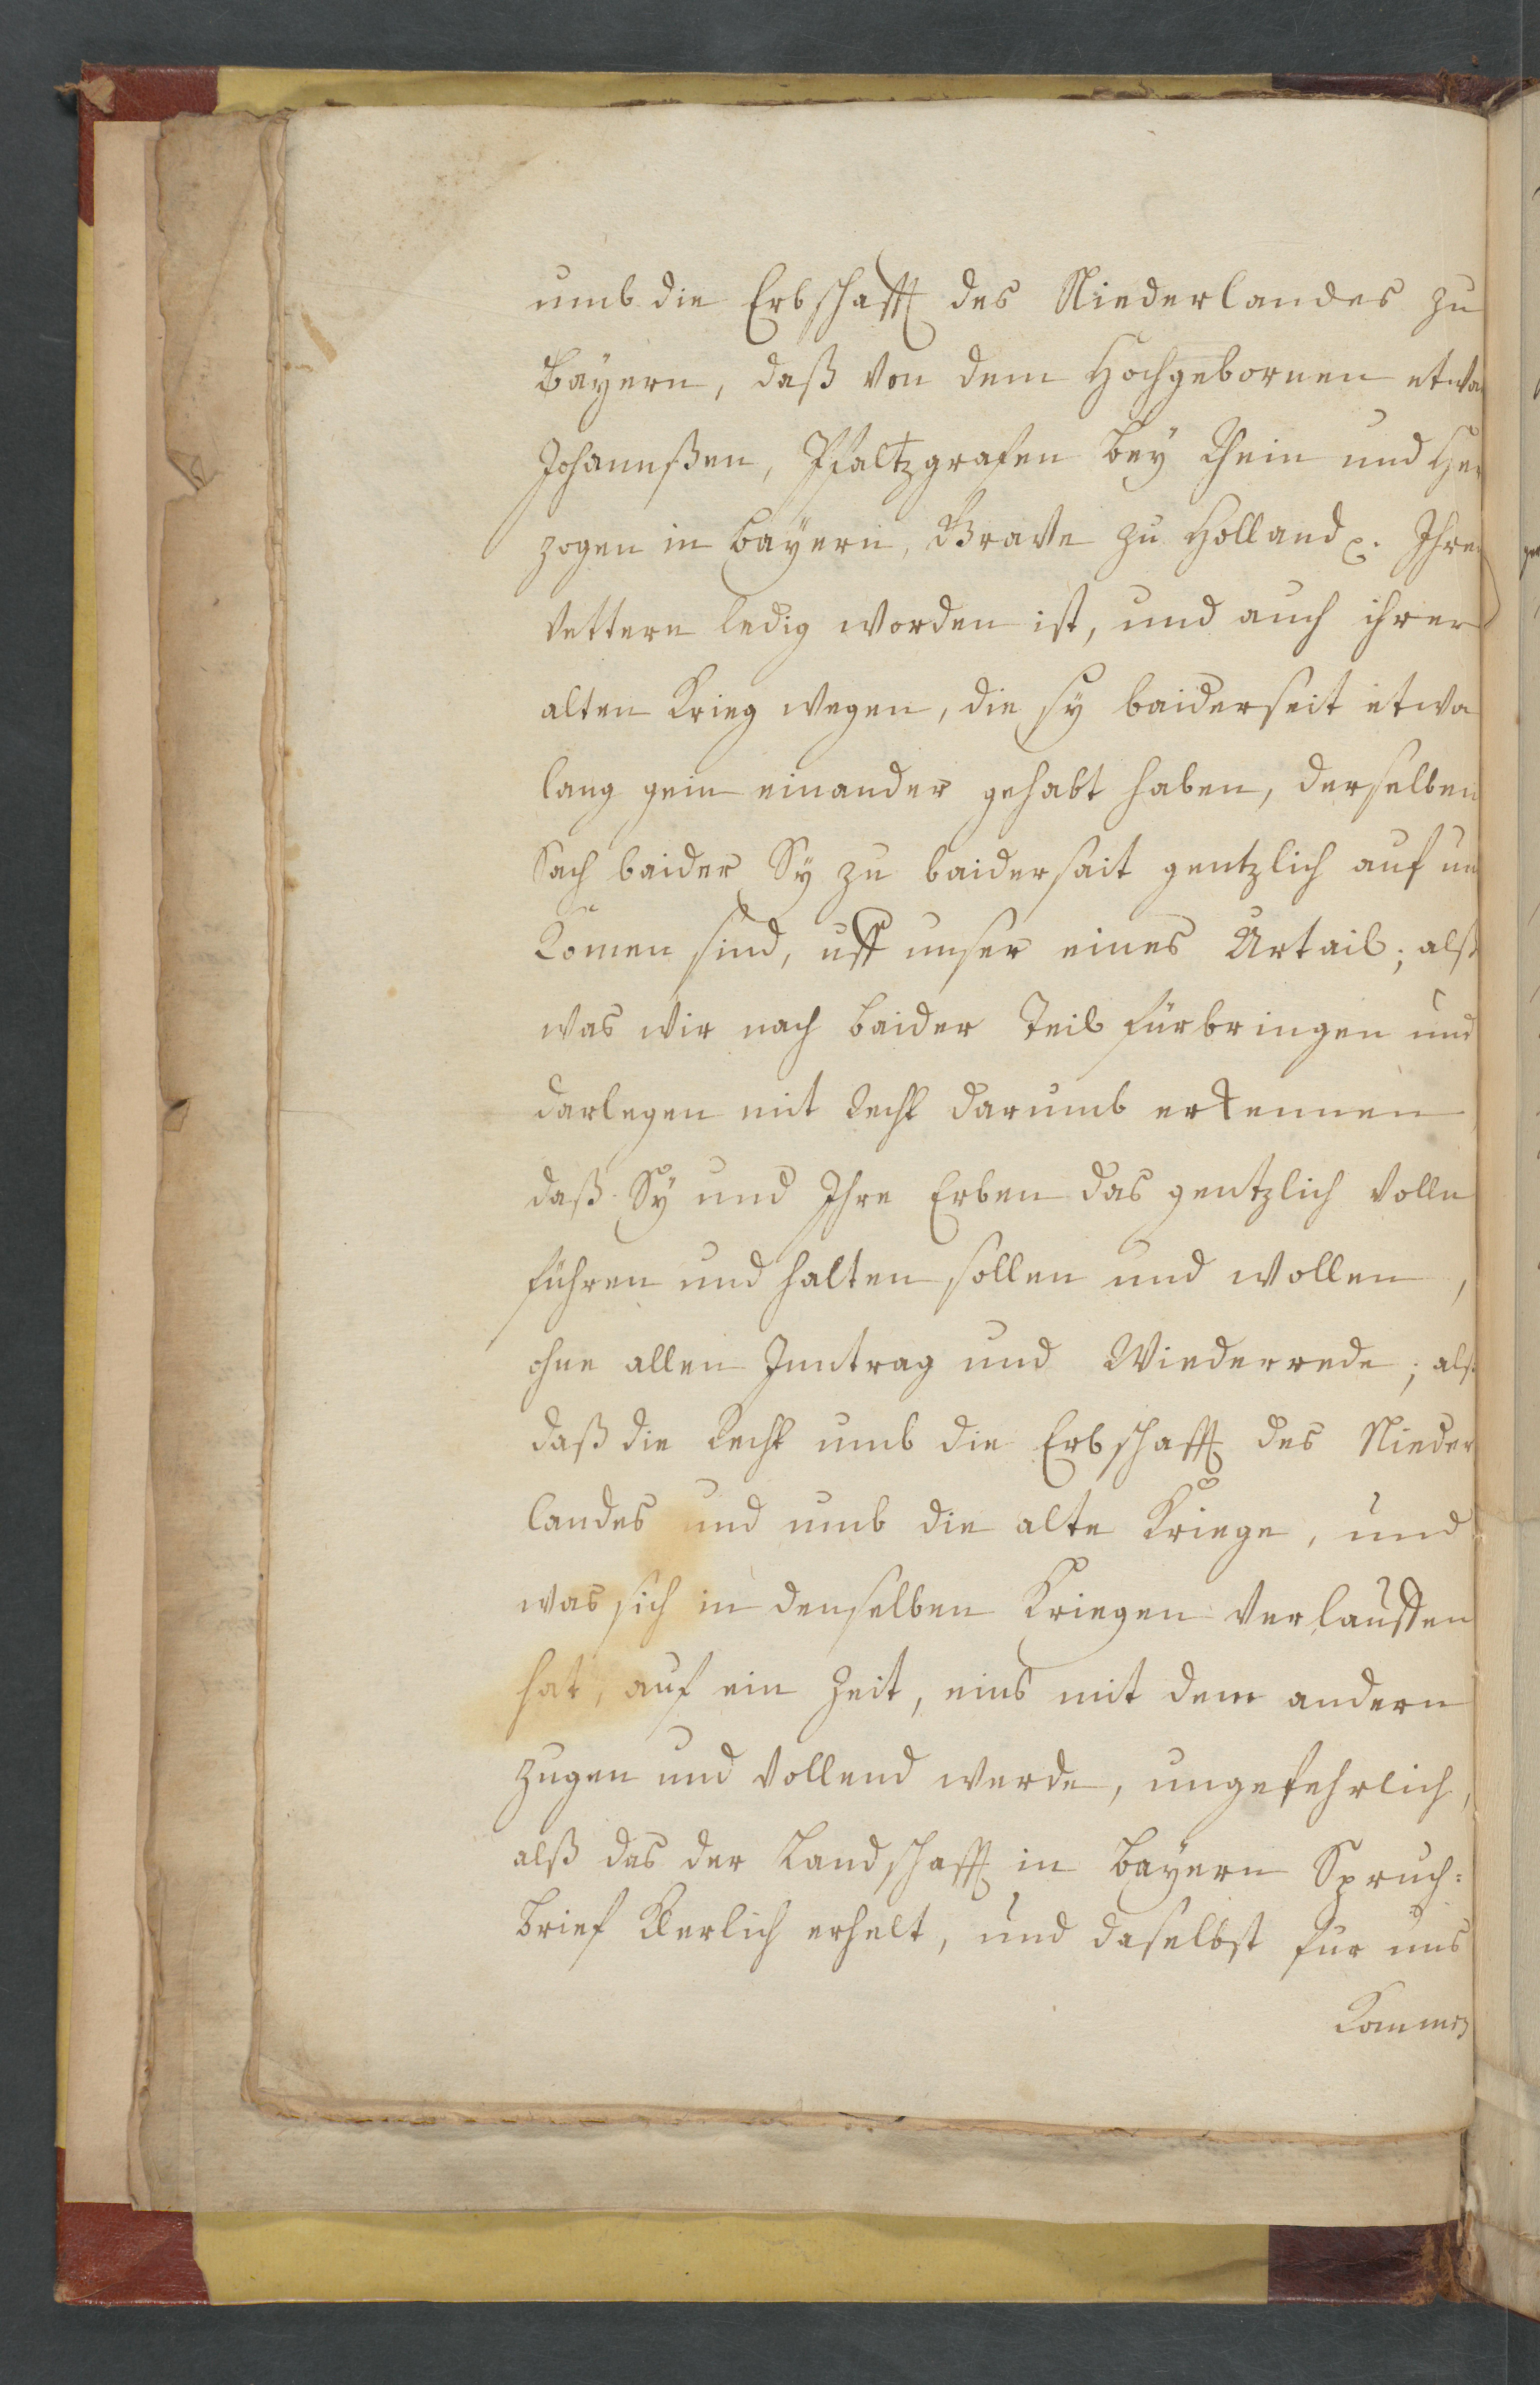 umb die Erbschafft des Niederlandes zu
Bayern, daß von dem Hochgebornen etwa
Johannßen, Pfaltzgrafen bey Rhein und Her
zogen in Bayern, Grave zu Holland ꝛc. Ihre
Vettern ledig worden ist, und auch ihrer
alten Krieg wegen, die sy baiderseit etwa
lang gein einander gehabt haben, derselben
Sach baider Sy zu baidersait gentzlich auf un
komen sind, uff unser eines Urtail; alß
was wir nach baider Teil fürbringen und
darlegen mit Recht darumb erkennen
daß Sy und Ihre Erben das gentzlich volln
führen und halten sollen und wollen,
ohne allen Inntrag und Wiederrede; alß
daß die Recht umb die Erbschafft des Nieder
landes und umb die alte Kriege, und
was sich in denselben Kriegen verlauffen
hat, auf ein Zeit, eins mit dem andern
zugen und vollend werde, ungefehrlich,
alß das der Landschafft in Bayern Spruch=
brief klerlich erhelt, und daselbst für uns
Kommen